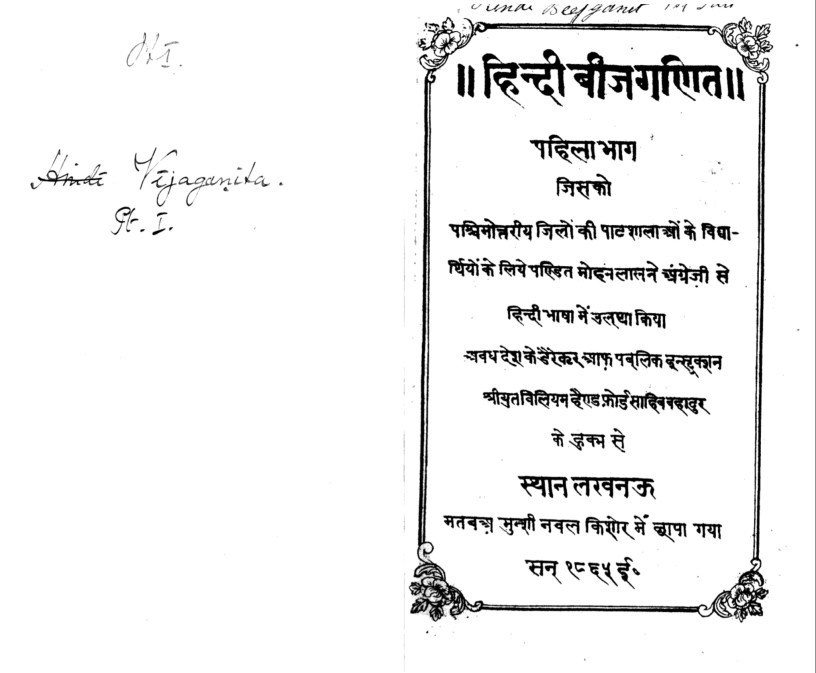 Pt I.
Hindi Vījagaṇita.
Pt. I.
Hindi Beejganit
॥ हिन्दी बीजगणित॥
पहिला भाग
जिसको
पश्चिमोत्तरीय ज़िलों की पाठशालाओं के विद्या-
र्थियों के लिये पण्डित मोहनलालने अंग्रेज़ी से
हिन्दी भाषा में उल्था किया
अवध देश के डैरेक्टर आफ़ पब्लिक इन्स्ट्रक्शन
श्रीयुत विलियम हैण्डफ़ोर्ड साहिब बहादुर
के हुक्म से
स्थान लखनऊ
मतबअ़ मुन्शी नवल किशोर में छापा गया
सन् १८६५ ई०